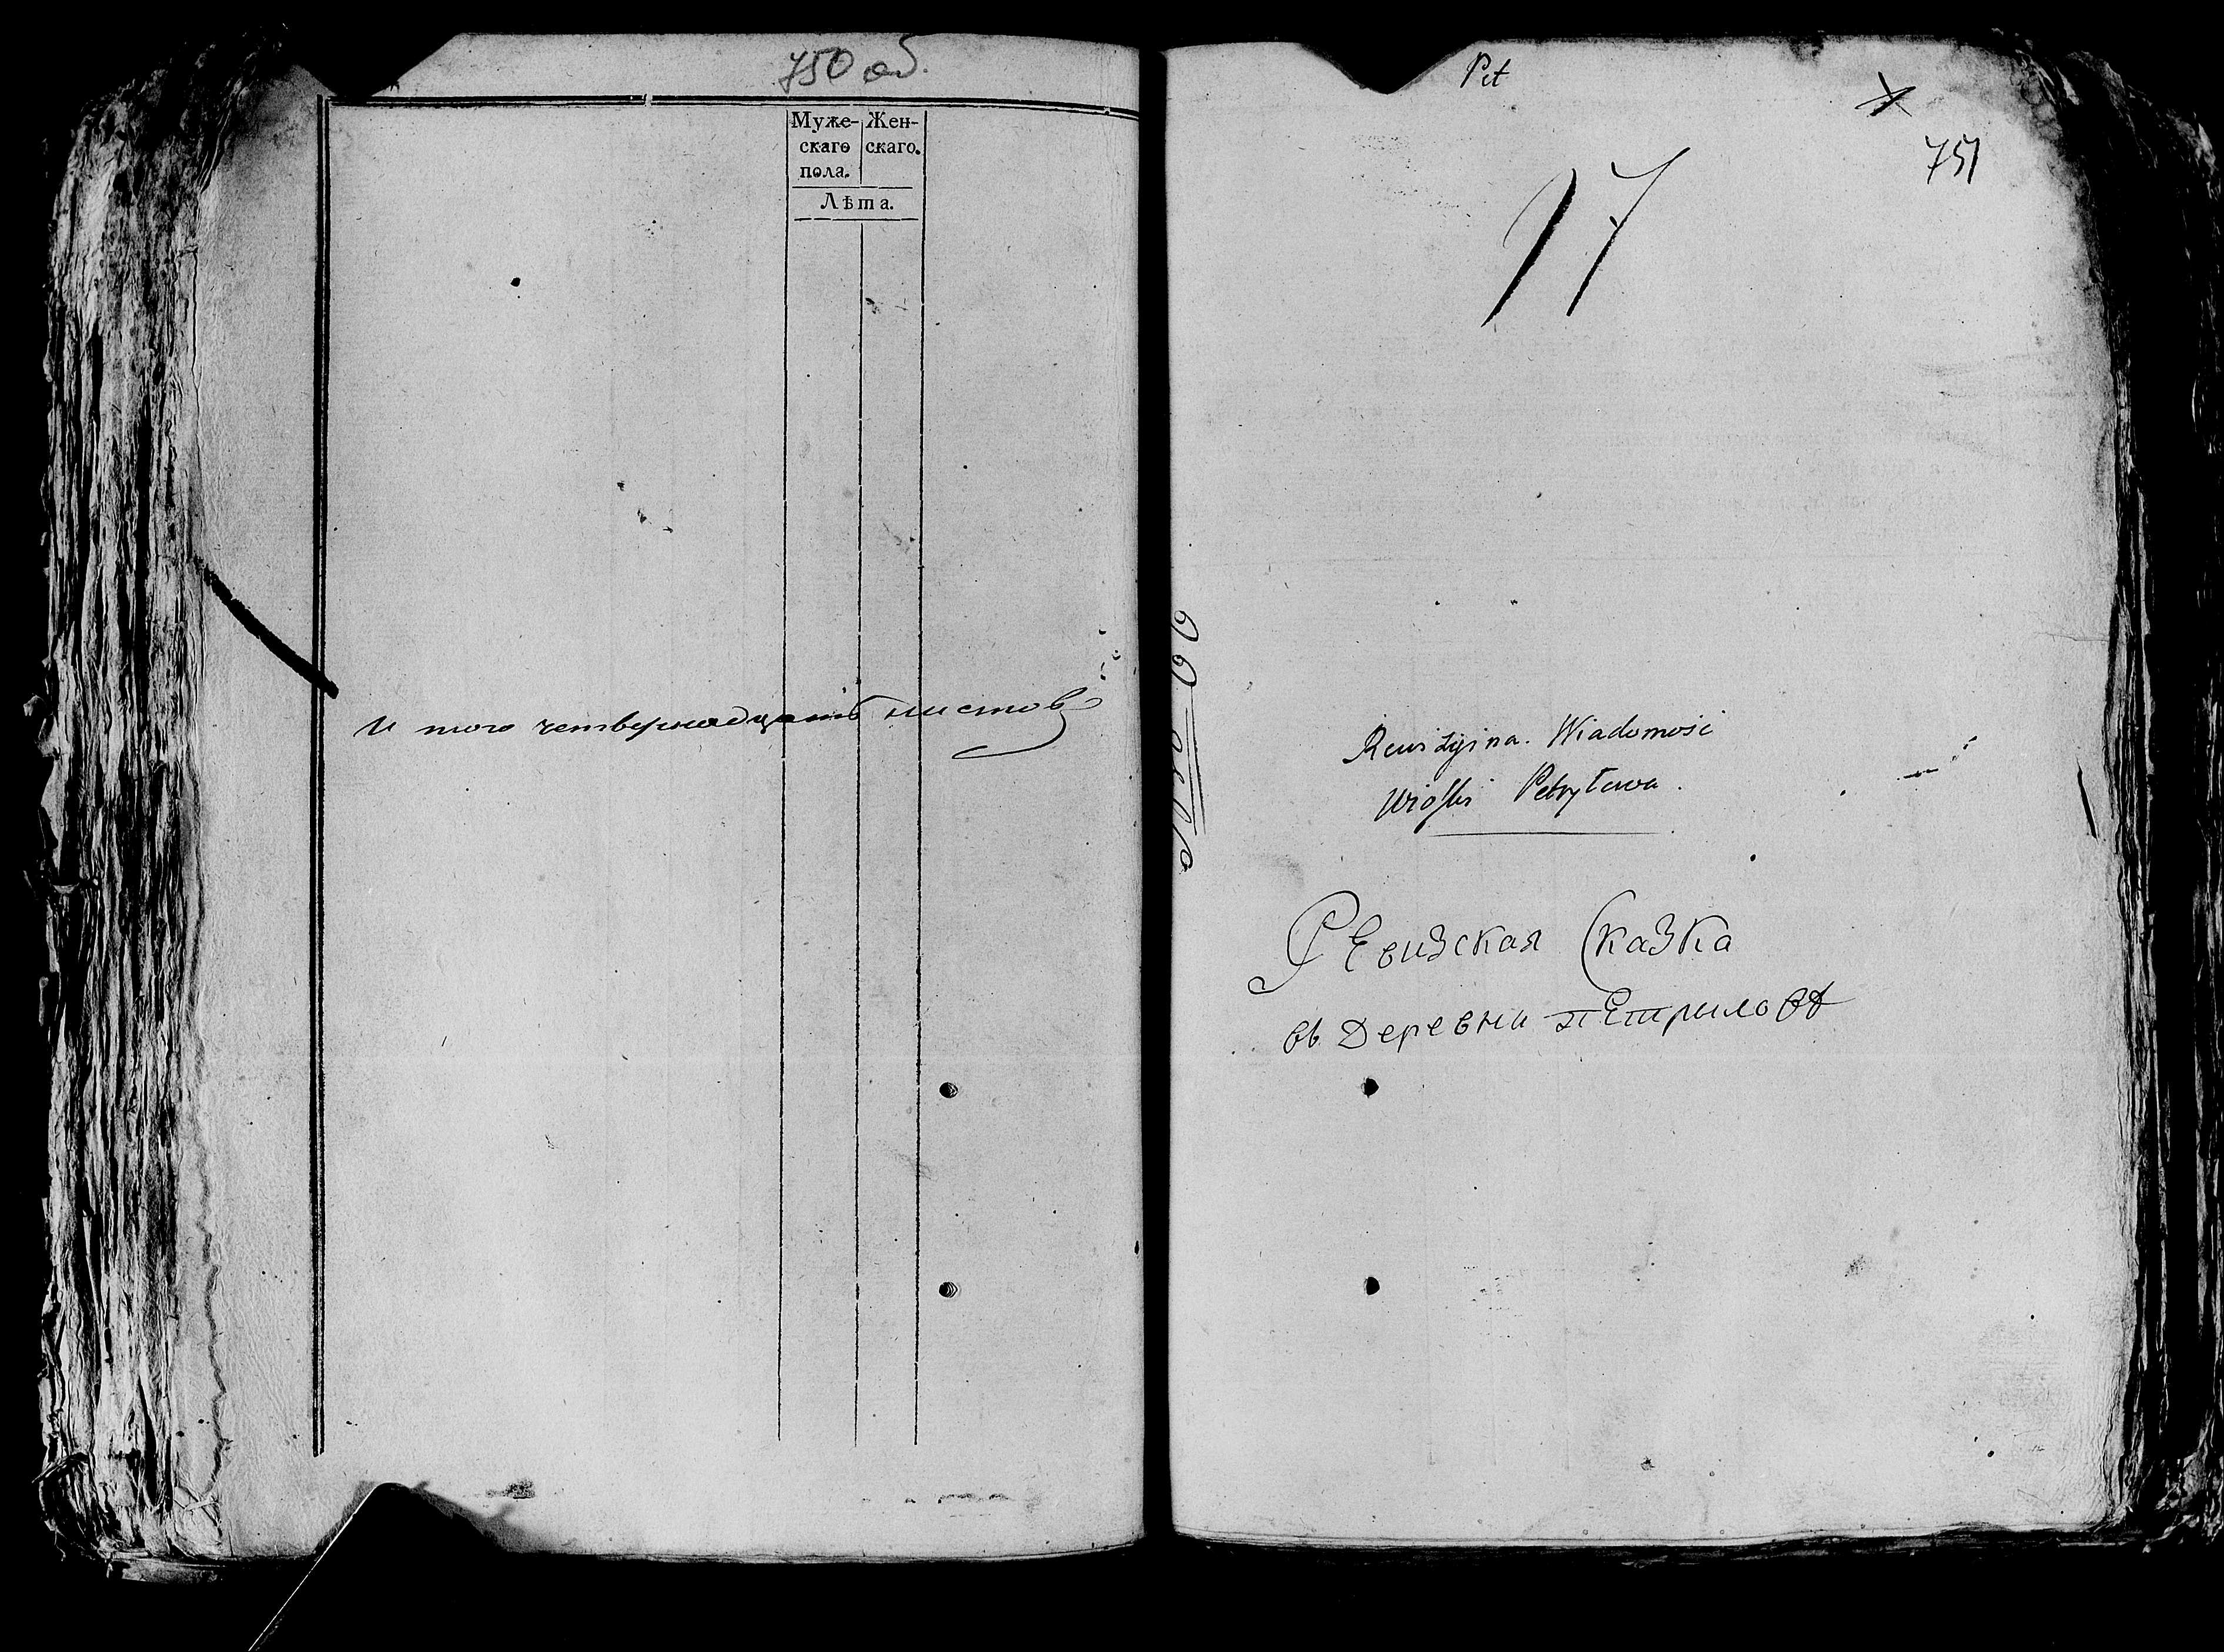 750 об.
Муже- Жен-
скаго скаго.
пола.
Лѣта.
И того четвернадцать листовъ
Pet
751
17
Rewizyina Wiadomosci
Wioski Petryłowa.
РЕвизская Сказка
въ Деревни пЕтриловѣ